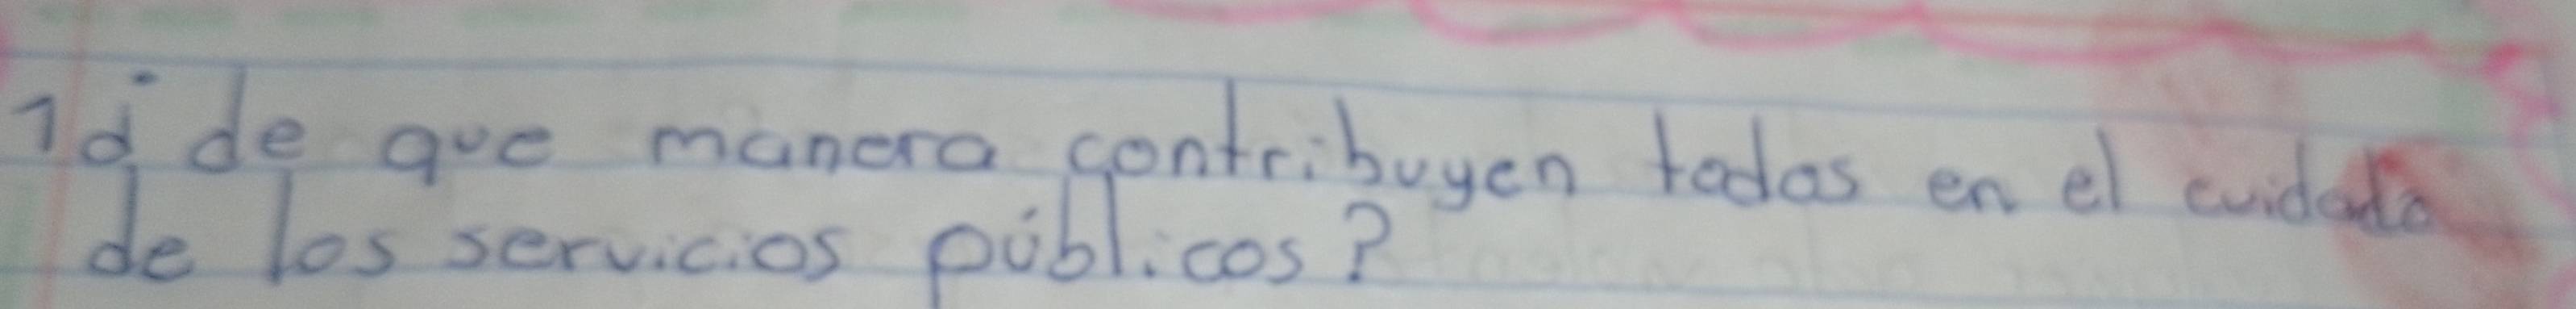 1¿ de que manera contribuyen todos en el cuidado
de los servicios públicos?